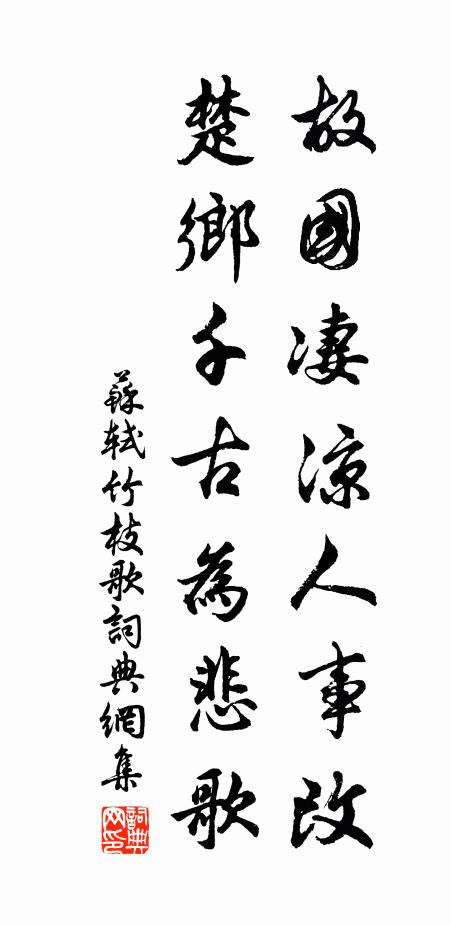 故國凄涼人事改
楚鄉千古為悲歌
蘇軾竹枝歌詞典網集
詞典网印